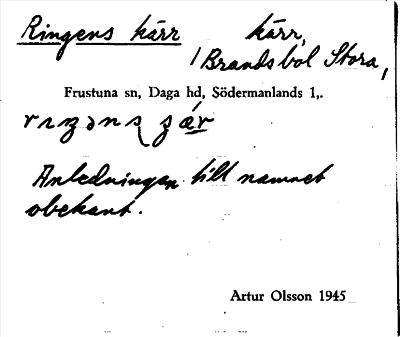 Ringens kärr kärr,
/Brandsbol Stora,
Frustuna sn, Daga hd, Södermanlands l,.
Anledningen till namnet
obekant.
Artur Olsson 1945